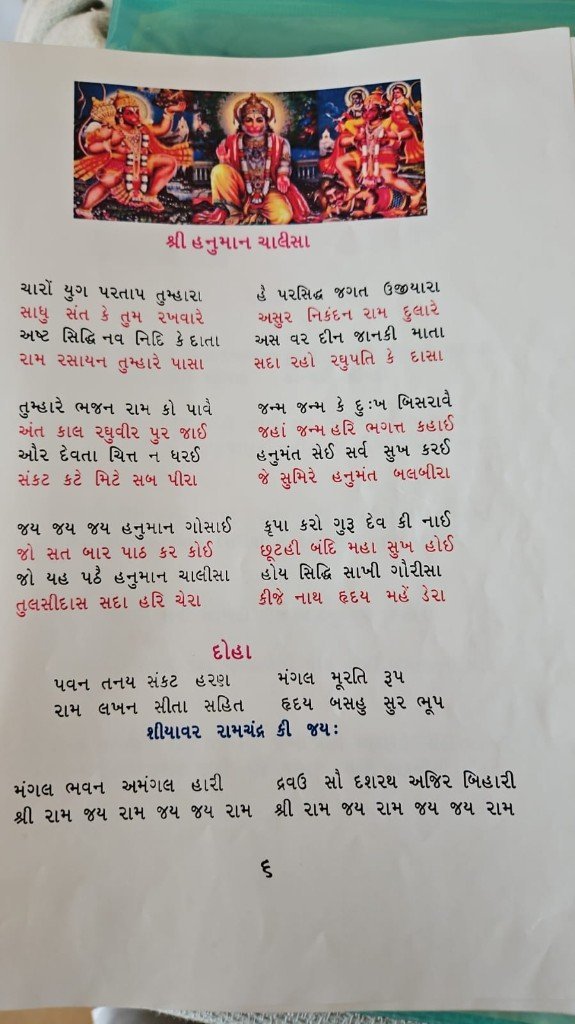 શ્રી હનુમાન ચાલીસા
ચારોં યુગ પરતાપ તુમ્હારા હૈ પરસિદ્ધ જગત ઉજીયારા
સાધુ સંત કે તુમ રખવારે અસુર નિકંદન રામ દુલારે
અષ્ટ સિદ્ધિ નવ નિદિ કે દાતા અસ વર દીન જાનકી માતા
રામ રસાયન તુમ્હારે પાસા સદા રહો રઘુપતિ કે દાસા
તુમ્હારે ભજન રામ કો પાવૈ જન્મ જન્મ કે દુઃખ બિસરાવૈ
અંત કાલ રઘુવીર પુર જાઈ જહાં જન્મ હરિ ભગત્ત કહાઈ
ઔર દેવતા ચિત્ત ન ધરઈ હનુમંત સેઈ સર્વ સુખ કરઈ
સંકટ કટે મિટે સબ પીરા જે સુમિરે હનુમંત બલબીરા
જય જય જય હનુમાન ગોસાઈ કૃપા કરો ગુરૂ દેવ કી નાઈ
જો સત બાર પાઠ કર કોઈ છૂટહી બંદિ મહા સુખ હોઈ
જો યહ પઠૈ હનુમાન ચાલીસા હોય સિદ્ધિ સાખી ગૌરીસા
તુલસીદાસ સદા હરિ ચેરા કીજે નાથ હૃદય મહેં ડેરા
દોહા
પવન તનય સંકટ હરણ મંગલ મૂરતિ રૂપ
રામ લખન સીતા સહિત હૃદય બસહુ સુર ભૂપ
શીયાવર રામચંદ્ર કી જયઃ
મંગલ ભવન અમંગલ હારી દ્રવઉ સૌ દશરથ અજિર બિહારી
શ્રી રામ જય રામ જય જય રામ શ્રી રામ જય રામ જય જય રામ
૬